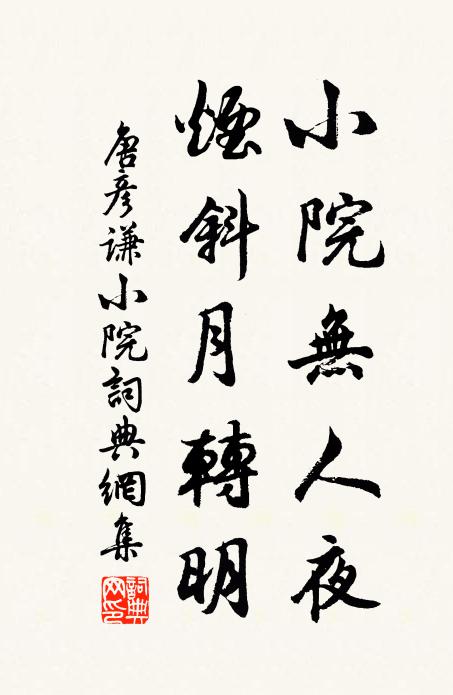 小院無人夜
煙斜月轉明
唐彥謙小院詞典網集
詞典
網印